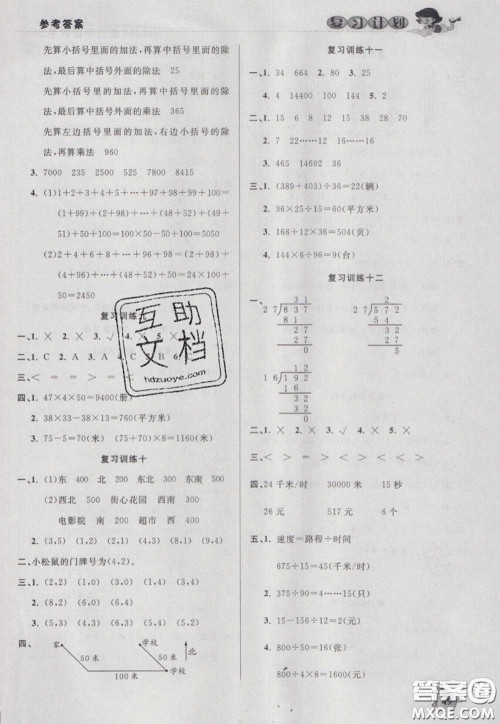 参考答案
复习计划
先算小括号里面的加法,再算中括号里面的除
法,最后算中括号外面的除法 25
先算小括号里面的加法,再算中括号里面的除
法,最后算中括号外面的乘法 365
先算左边括号里面的加法,右边小括号的除法,
再算乘法 960
3. 7000 235 2500 7630 525 8415
4. (1)1+2+3+4+5+…+97+98+99+100=
(1+99)+(2+98)+…+(49+
51)+50+100=100×50+50=5050
(2)2+4+6+8+…+96+98=(2+98)+
(4+96)+…+(48+52)+50=24×100+
50=2450
复习训练
一、1. × 2. × 3. √ 4.
二、1. C 2. A
三、< =
四、1. 47×4×50=9400(册)
2. 38×33-38×13=760(平方米)
3. 75-5=70(米) (75+70)×8=1160(米)
复习训练十
一、1. (1)东 400 北 200 东 300 东南 500
(2)西北 500 街心花园 西南 300
电影院 南 200 超市 西 300
2. (3,2) (5,1) (2,1) (4,3) (3,1)
二、小松鼠的门牌号为(4,2)。
三、1. (2,2) (3,0) (1,0) (3,4)
2. (8,2) (8,4) (9,4)
四、
家
50 米
学校
50 米
100 米
学校
北
互助文档
hdzuoye.com
复习训练十一
一、1. 34 664 2. 80 3. 25
4. 4 14400 100 144 5. 2
二、1. 27 14 12 15 38 28
2. 7 22……12 16……16
3. 465 14692 36
三、1. (389+403)÷36=22(辆)
2. 36×25÷15=60(平方米)
3. 168÷12×36=504(页)
4. 144×6÷96=9(台)
复习训练十二
二、1. × 2. × 3. √ 4. × 5. ×
三、> < > < > < > = >
四、24 千米/时 30000 米 15 秒
26 元 216 元 34 元
五、1. 速度=路程÷时间
675÷15=45(千米/时)
2. 850÷50=17(元)
3. 816÷16=51(只)
4. 800÷50=16(张)
800÷4×8=1600(元)
答案圈
MXQE.COM